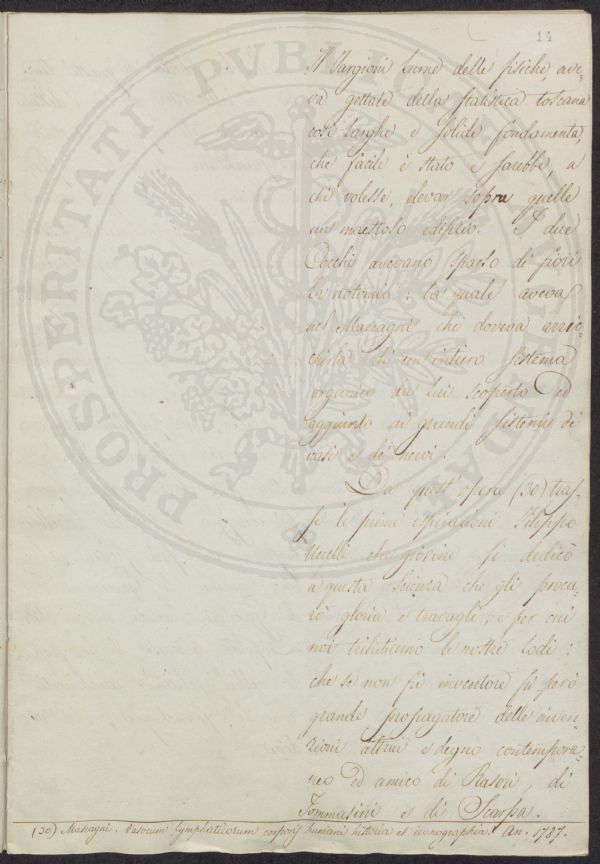 14
Il Targioni kome delle fisiche ave-
va gettate della statistica toscana
così larghe e solide fondamenta,
che facile è stato e sarebbe, a
chi volesse, elevar sopra quelle
un maestoso edifizio. I due
Cocchi avevano sparso di fiori
la notomia: la quale aveva
nel Mascagni chi doveva arric-
chirla di un intiero sistema
organico da lui scoperto ed
aggiunto ai grandi sistemi di
vasi e di nervi.
Da quest' opera (30) tras-
se le prime ispirazioni Filippo
Uccelli che giovine si dedicò
a questa scienza che gli procu-
rò gloria e travagli, e per cui
noi tributiamo le nostre lodi:
che se non fù inventore fù però
grande propagatore delle inven-
zioni altrui e degno contempora-
neo ed amico di Rasori, di
Tommasini e di Scarpa.
(30) Mascagni. Vasorum lymphaticorum corporis humani historia et iconographia. An. 1787.
PROSPERITATI PUBLICAE AUGENDAE